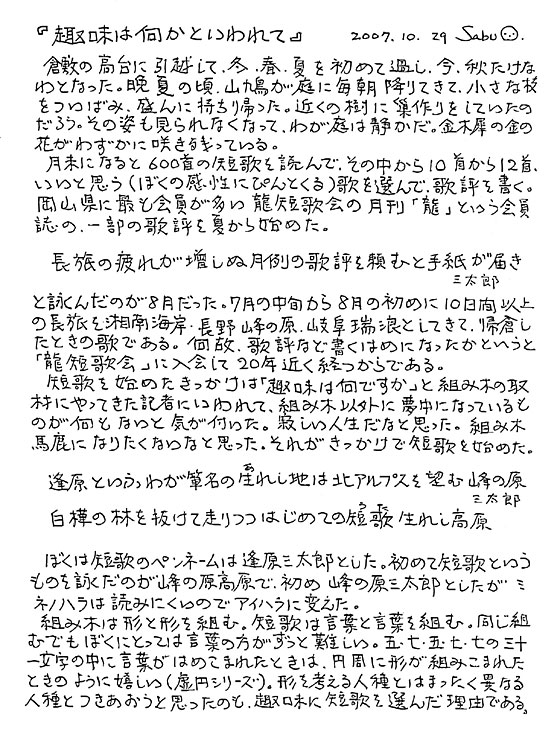 『趣味は何かといわれて』 2007.10.29 Sabu
倉敷の高台に引越して、冬、春、夏を初めて過し、今、秋たけな
わとなった。晩夏の頃、山鳩が庭に毎朝降りてきて、小さな枝
をついばみ、盛んに持ち帰った。近くの樹に巣作りをしていたの
だろう。その姿も見られなくなって、わが庭は静かだ。金木犀の金の
花がわずかに咲き残っている。
月末になると600首の短歌を読んで、その中から10首から12首、
いいと思う(ぼくの感性にぴんとくる)歌を選んで、歌評を書く。
岡山県に最も会員が多い龍短歌会の月刊「龍」という会員
誌の、一部の歌評を夏から始めた。
長旅の疲れが増しぬ月例の歌評を頼むと手紙が届き
三太郎
と詠んだのが8月だった。7月の中旬から8月の初めに10日間以上
の長旅を湘南海岸・長野峰の原、岐阜瑞浪としてきて、帰倉し
たときの歌である。何故、歌評など書くはめになったかというと
「龍短歌会」に入会して20年近く経つからである。
短歌を始めたきっかけは「趣味は何ですか」と組み木の取
材にやってきた記者にいわれて、組み木以外に夢中になっているも
のが何もないと気が付いた。寂しい人生だなと思った。組み木
馬鹿になりたくないなと思った。それがきっかけで短歌を始めた。
逢原というわが筆名の生(あ)れし地は北アルプスを望む峰の原
三太郎
白樺の林を抜けて走りつつはじめての短歌(うた)生れし高原
ぼくは短歌のペンネームは逢原三太郎とした。初めて短歌という
ものを詠んだのが峰の原高原で、初め峰の原三太郎としたがミ
ネノハラは読みにくいのでアイハラに変えた。
組み木は形と形を組む。短歌は言葉と言葉を組む。同じ組
むでもぼくにとっては言葉の方がずっと難しい。五・七・五・七・七の三十
一文字の中に言葉がはめこまれたときは、円周に形が組みこまれた
ときのように嬉しい(虚円シリーズ)。形を考える人種とはまったく異なる
人種とつきあおうと思ったのも、趣味に短歌を選んだ理由である。